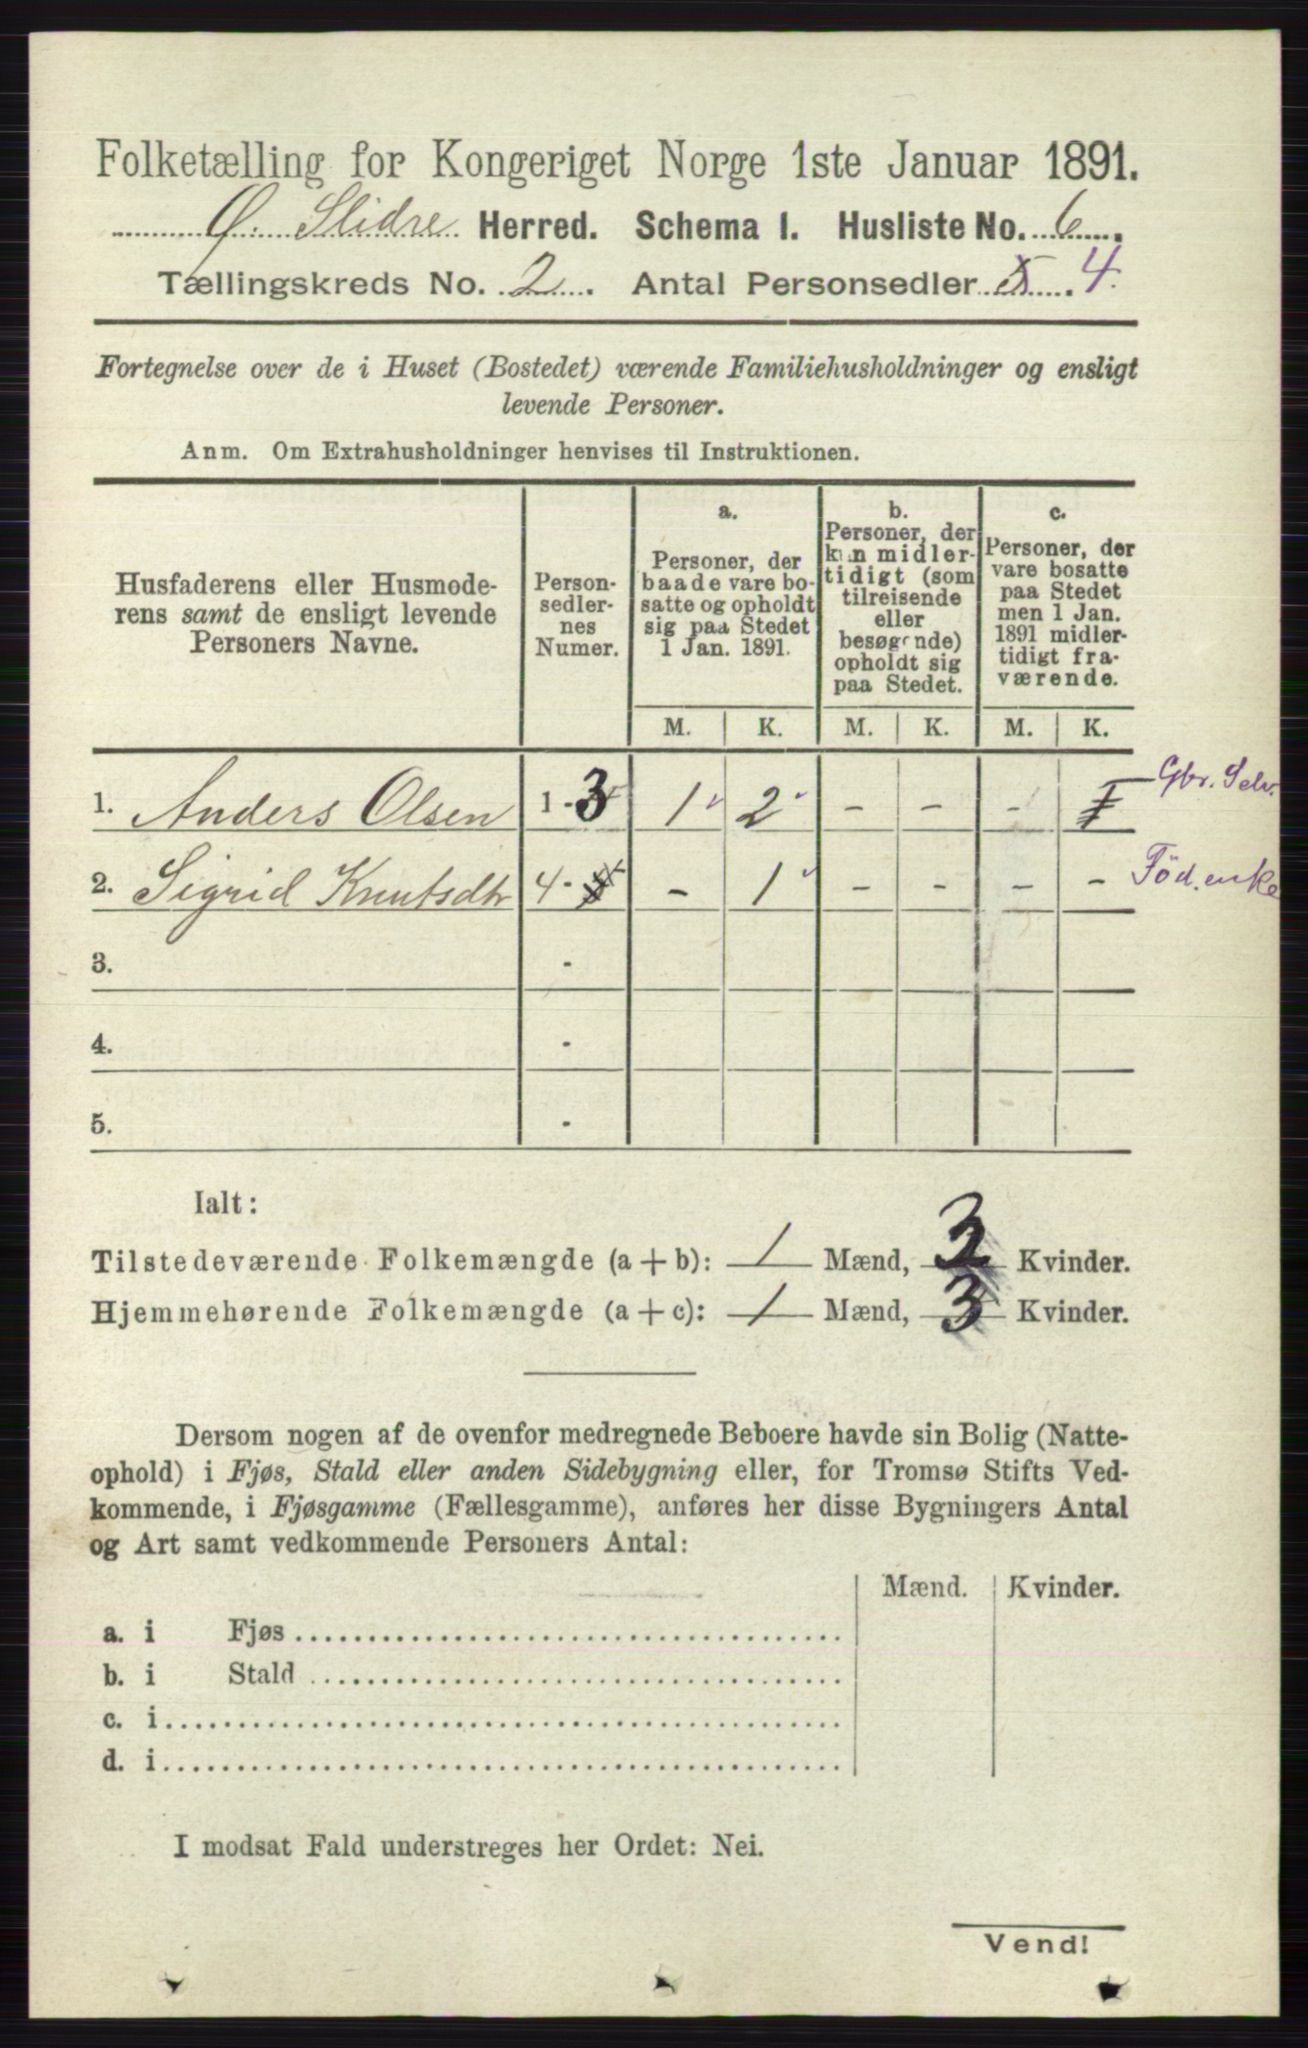 Folketælling for Kongeriget Norge 1ste Januar 1891.
Ø. Slidre Herred. Schema I. Husliste No. 6.
Tællingskreds No. 2. Antal Personsedler 5. 4.
Fortegnelse over de i Huset (Bostedet) værende Familiehusholdninger og ensligt
levende Personer.
Anm. Om Extrahusholdninger henvises til Instruktionen.
Husfaderens eller Husmode-
rens samt de ensligt levende
Personers Navne.
Person-
sedler-
nes
Numer.
a.
Personer, der
baade vare bo-
satte og opholdt
sig paa Stedet
1 Jan. 1891.
b.
Personer, der
kun midler-
tidigt (som
tilreisende
eller
besøgende)
opholdt sig
paa Stedet.
c.
Personer, der
vare bosatte
paa Stedet
men 1 Jan.
1891 midler-
tidigt fra-
værende.
M. K. M. K. M. K.
1. Anders Olsen 1 - 3 1 2 - - - 1 Gbr. Selv.
2. Sigrid Knutsdtr 4 - - 1 - - - - Föd. enke
3. -
4. -
5. -
Ialt:
Tilstedeværende Folkemængde (a + b): 1 Mænd, 3 Kvinder.
Hjemmehørende Folkemængde (a + c): 1 Mænd, 3 Kvinder.
Dersom nogen af de ovenfor medregnede Beboere havde sin Bolig (Natte-
ophold) i Fjøs, Stald eller anden Sidebygning eller, for Tromsø Stifts Ved-
kommende, i Fjøsgamme (Fællesgamme), anføres her disse Bygningers Antal
og Art samt vedkommende Personers Antal:
Mænd. Kvinder.
a. i Fjøs
b. i Stald
c. i
d. i
I modsat Fald understreges her Ordet: Nei.
Vend!